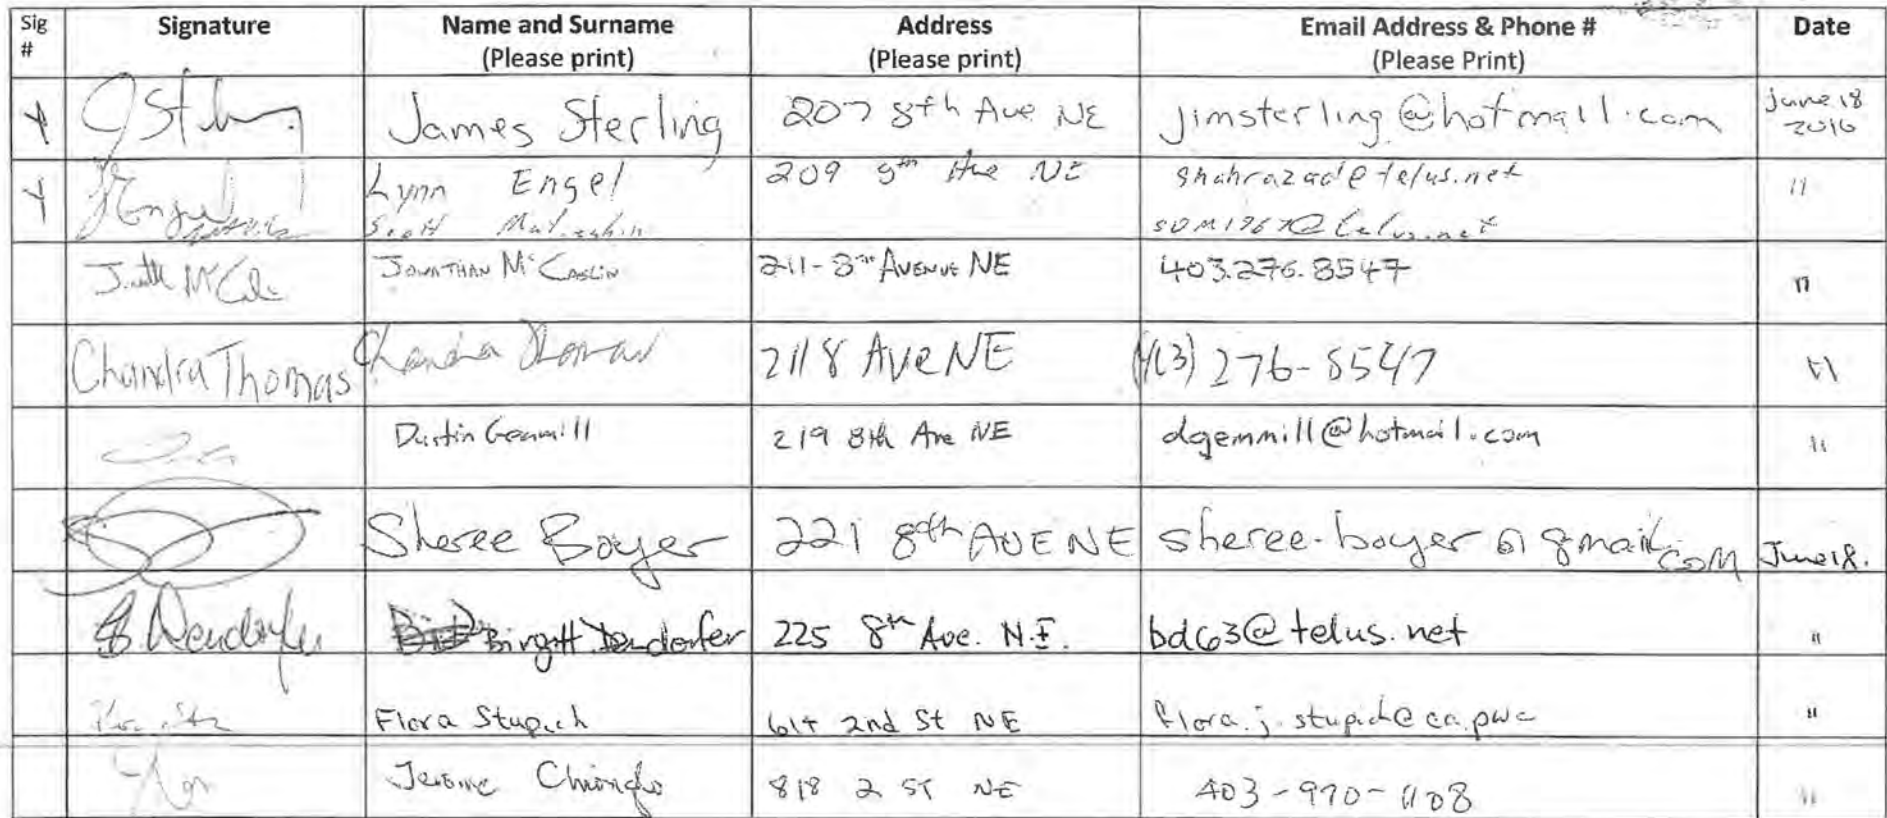 Sig # Signature Name and Surname (Please print) Address (Please print) Email Address & Phone # (Please Print) Date
James Sterling 207 8th Ave NE jimsterling@hotmail.com June 18 2016
Lynn Engel 209 8th Ave NE shahrazad@telus.net "
Scott
Jonathan McCaslin 211-8th Avenue NE 403.276.8547 "
Chandra Thomas Chandra Thomas 211 8 Ave NE (403) 276-8547 "
Dustin Gemmill 219 8th Ave NE dgemmill@hotmail.com "
Sheree Boyer 221 8th AVE NE sheree.boyer@gmail.com June 18.
B. Dendorfer Birgitt Dendorfer 225 8th Ave. N.E. bd63@telus.net "
Flora Stupich 614 2nd St NE flora.j.stupich@ca.pwc "
Jerome 818 2 ST NE 403-970-1108 "